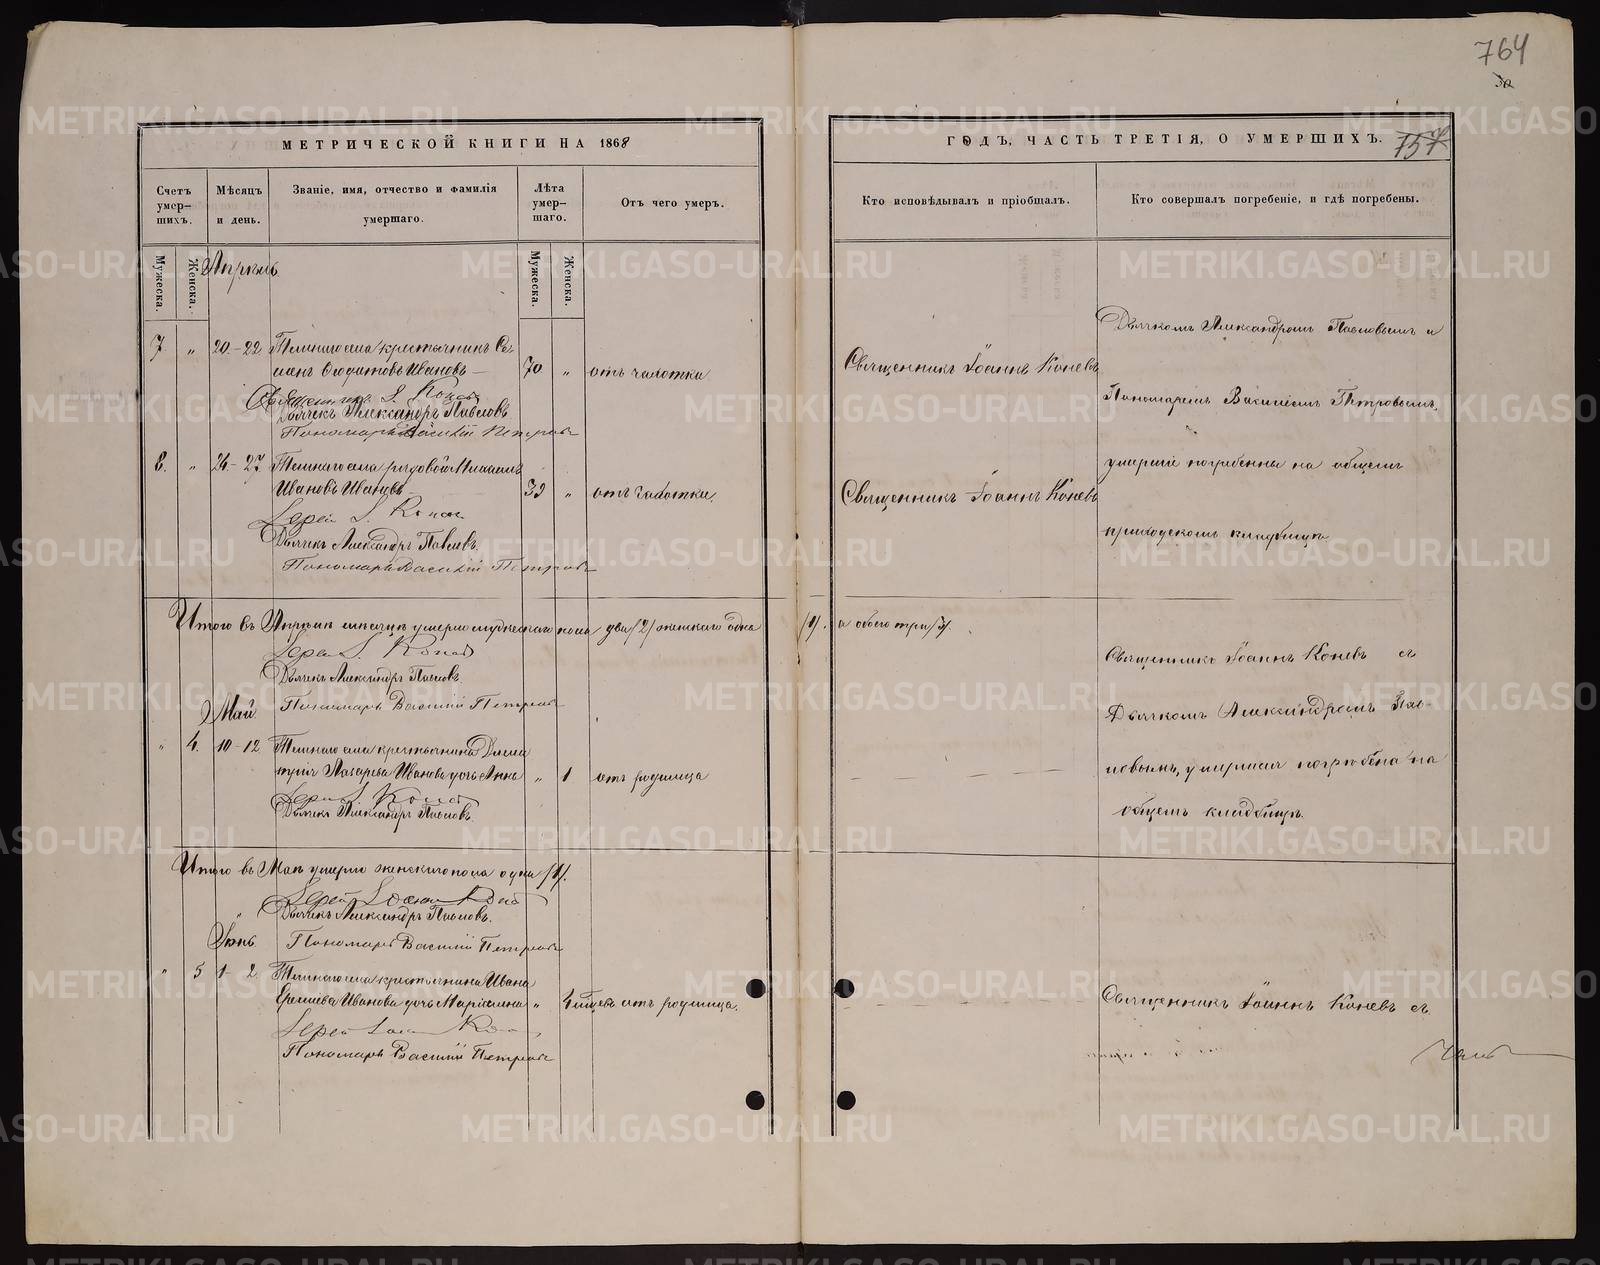 764
30
МЕТРИЧЕСКОЙ КНИГИ НА 1868
ГОДЪ, ЧАСТЬ ТРЕТІЯ, О УМЕРШИХЪ.
757
Счетъ умер-шихъ.
Мѣсяцъ и день.
Званіе, имя, отчество и фамилія умершаго.
Лѣта умер-шаго.
Отъ чего умеръ.
Кто исповѣдывалъ и пріобщалъ.
Кто совершалъ погребеніе, и гдѣ погребены.
Мужеска.
Женска.
Мужеска.
Женска.
Апрѣль
7 " 20-22
крестьянинъ Се-
менъ Ивановъ
70 " отъ чахотки
Священникъ Іоаннъ Коневъ
Дьячкомъ Александромъ Павловымъ и
Священникъ І. Коневъ
Дьячекъ Александръ Павловъ
Пономарь Василій Петровъ
Пономаремъ Василіемъ Петровымъ
8. " 26-27
рядовой Михаилъ
Ивановъ Ивановъ
" отъ чахотки
Священникъ Іоаннъ Коневъ
умершіе погребены на общемъ
Іерей І. Коневъ
Дьячекъ Александръ Павловъ.
Пономарь Василій Петровъ
приходскомъ кладбищѣ
Итого въ Апрѣлѣ мѣсяцѣ умерло мужескаго пола два /2/ женскаго одна /1/. а обоего три /3/.
Іерей І. Коневъ
Дьячекъ Александръ Павловъ.
Пономарь Василій Петровъ
Священникъ Іоаннъ Коневъ съ
Май
Дьячкомъ Александромъ Пав-
" 4. 10-12
крестьянина Дими
трія Лазарева Иванова дочь Анна
" 1 отъ родимца
ловымъ, умершая погребена на
Іерей І. Коневъ
Дьячекъ Александръ Павловъ.
общемъ кладбищѣ.
Итого въ Маѣ умерло женскаго пола одна /1/.
Іерей Іоаннъ Коневъ
Дьячекъ Александръ Павловъ.
Пономарь Василій Петровъ
Іюнь
" 5 1-2
крестьянина Ивана
Иванова дочь
" отъ родимца.
Священникъ Іоаннъ Коневъ съ
Іерей Іоаннъ Коневъ
Пономарь Василій Петровъ
METRIKI.GASO-URAL.RU